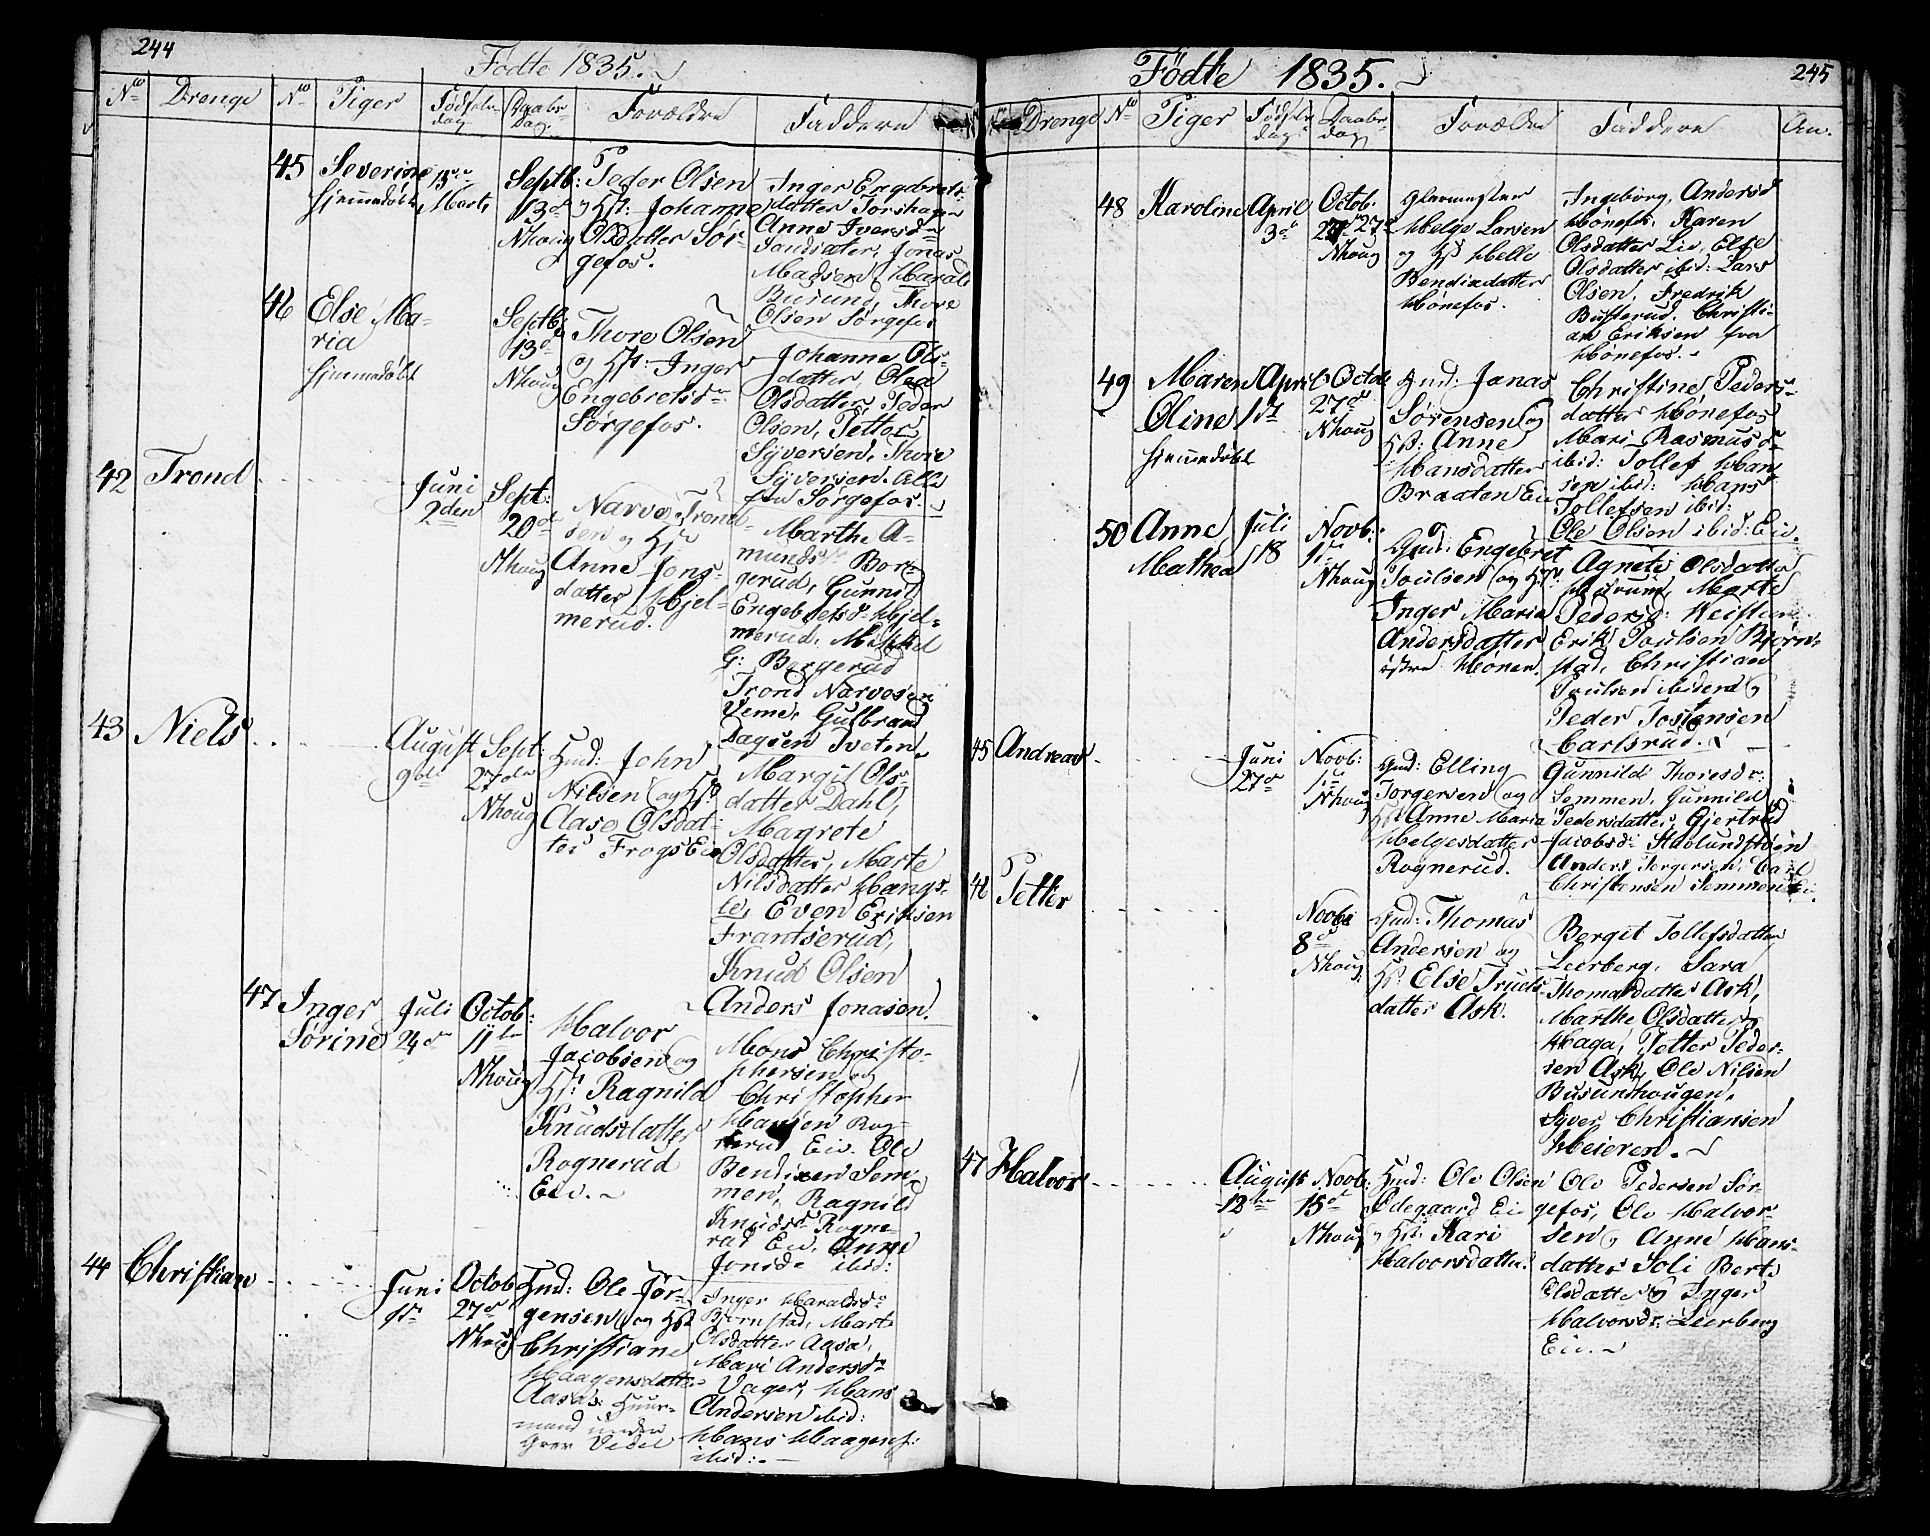 244
Födte 1835.
No Drenge No Piger Fødselsdag Daabsdag Forældre Faddere
45 Severine
hjemmedøbt
15de
Marts
Septb:
13de
Nhoug
Peder Olsen
og Hst: Johanne
Olsdatter Sör-
gefos.
Inger Engebrets-
datter
Anne Iversdr
Jonas
Madsen,
Busund, Thore
Olsen Sørgefos
46 Else Ma-
ria
hjemmedøbt
Septb:
13de
Nhoug
Thore Olsen
og Hst: Inger
Engebretsdr
Sørgefos.
Johanne Ols-
datter, Olea
Olsdatter, Peder
Olsen, Petter
Syversen, Thore
Syversen Alle
fra Sørgefos.
42 Trond
Juni
2den
Sept:
20de
Nhoug
Narve Trond-
sen og Hst
Anne Jons-
datter Hjel-
merud.
Marthe A-
mundsdr Bor-
gerud, Gunnil
Engebretsdr Hjel-
merud, Mikkel
G: Borgerud
Trond Narvesen
Veme, Gulbrand
Dagsen Tveten.
43 Niels
August
9de
Sept:
27de
Nhoug
Gmd: John
Nilsen og Hst
Aase Olsdat-
ter Frogs Eie
Margit Ols-
datter Dahl,
Magrete
Olsdatter, Marte
Nilsdatter Hængs-
le, Even Eriksen
Frantserud,
Knud Olsen
Anders Jonasen.
47 Inger
Sørine
Juli
24de
Octob:
11te
Nhoug
Halvor
Jacobsen og
Hst Ragnild
Knudsdatter
Rognerud
Eie.
Mons Christo-
phersen og
Christopher
Hansen Rog-
nerud Eie. Ole
Bendixen Sem-
men, Ragnild
Knudsdr Rogne-
rud Eie, Anne
Jonsdr ibid:
44 Christian
Juni
Octob
27de
Nhoug
Gmd: Ole Jør-
gensen og Hst
Christiane
Haagensdatter
Aasa:
mand under
Grev Vedel
Inger Haraldsdr
Bjørnstad, Marte
Olsdatter Aasa,
Mari Andersdr
Vager, Hans
Andersen ibid:
Hans Haagens:
ibid:
245
Födte 1835.
No Drenge No Piger Fødselsdag Daabsdag Forældre Faddere An.
48 Karoline
April
3de
Octob.
27de
Nhoug
Glarmester
Helge Larsen
og Hst Helle
Bendixdatter
Hönefos.
Ingeborg Andersdr
Hönefos, Karen
Olsdatter Lie, Else
Olsdatter ibid: Lars
Olsen, Fredrik
Busterud, Christi-
an Eriksen fra
Hönefos.
49 Maren
Oline
hjemmedøbt
April
17
Octob
27de
Nhoug
Gmd: Jonas
Sörensen og
Hst: Anne
Hansdatter
Braaten Eie
Christine Peders-
datter Hönefos
Mari Rasmusdr
ibid: Tollef Han
sen ibid: Hans
Tollefsen ibid:
Ole Olsen ibid: Eie.
50 Anne
Mathea
Juli
18
Novb:
1te
Nhoug
Gmd: Engebret
Poulsen og Hst
Inger Maria
Andersdatter
østre Hönen.
Agnete Olsdatter
Marte
Pedersd:
Erik Poulsen Bjørn-
stad, Christian
Poulsen ibidem og
Peder Tostensen
Carlsrud.
45 Andreas
Juni
27de
Novb:
1te
Nhoug
Gmd: Elling
Torgersen og
Hst Anne Maria
Helgesdatter
Rognerud.
Gunnild Thoresdr:
Semmen, Gunnild
Pedersdatter, Gjertrud
Jacobsdr
Anders Torgersen, Carl
Christensen Semmen Eie.
46 Petter
Novbr
8de
Nhoug
Gmd: Thomas
Andersen og
Hst Else Truels-
datter Ask.
Bergit Tollefsdatter
Leerberg, Sara
Thomasdatter Ask,
Marthe Olsdatter
Haga, Petter Peder-
sen Ask, Ole Nilsen
Busunhougen,
Syver Christiansen
Heieren.
47 Halvor
August
12te
Novb:
15de
Nhoug
Gmd: Ole Olsen
Ødegaard Eie
og Hst: Kari
Halvorsdatter.
Ole Pedersen Sör-
gefos, Ole Halvor-
sen, Anne Hans-
datter Soli Bert.
Olsdatter og Inger
Halvorsdr: Leerberg
Eie.